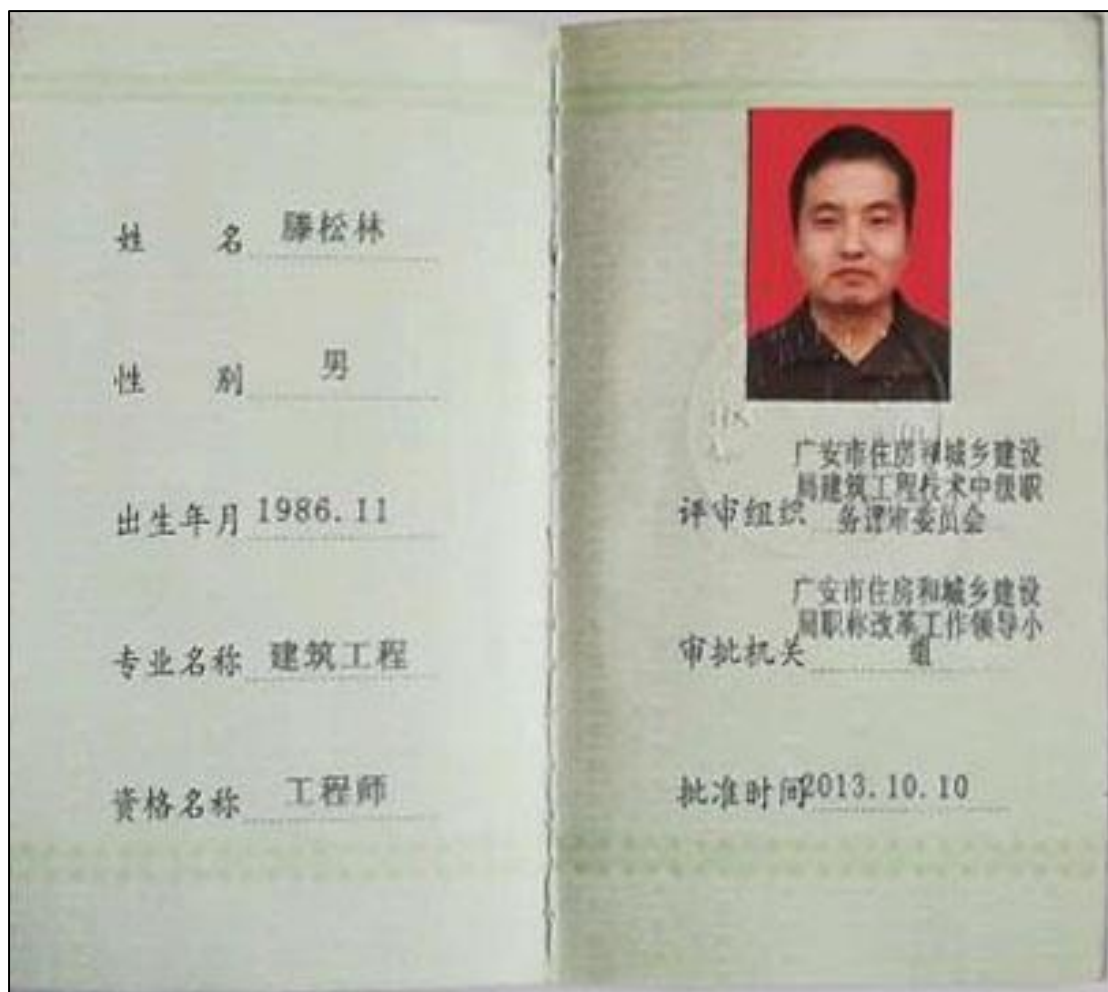 姓 名 滕松林
性 别 男
出生年月 1986.11
专业名称 建筑工程
资格名称 工程师
广安市住房和城乡建设
局建筑工程技术中级职
评审组织 务评审委员会
广安市住房和城乡建设
局职称改革工作领导小
审批机关 组
批准时间 2013.10.10